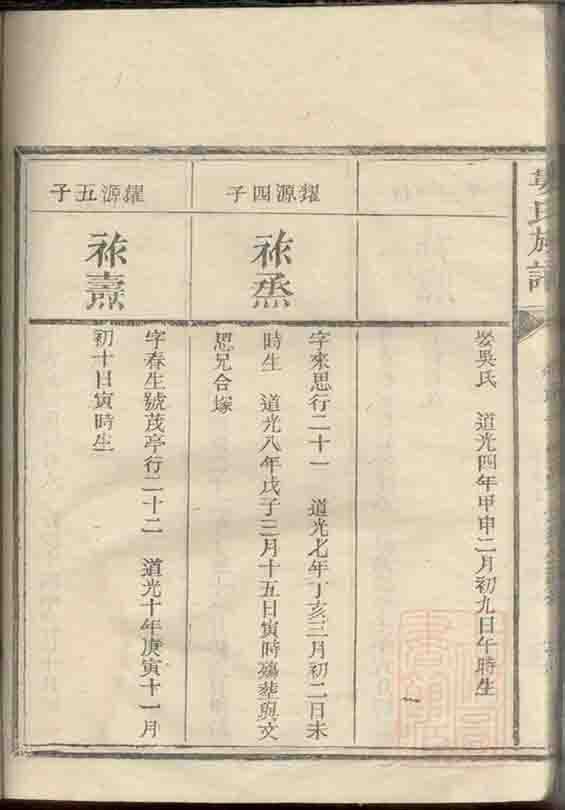 氏族譜
娶吳氏　道光四年甲申二月初九日午時生
耀源四子
祚烝
字來思行二十一　道光七年丁亥三月初二日未
時生　道光八年戊子三月十五日寅時殤葬與文
思兄合塚
耀源五子
祚燾
字春生號茂亭行二十二　道光十年庚寅十一月
初十日寅時生